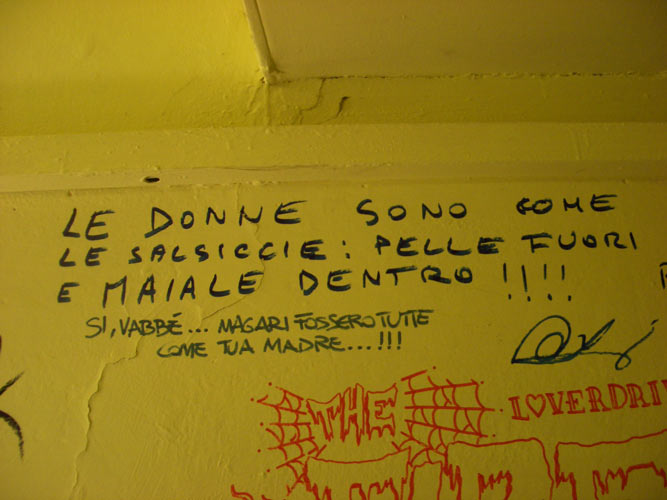 LE DONNE SONO COME
LE SALSICCIE: PELLE FUORI
E MAIALE DENTRO!!!!
SI, VABBÉ... MAGARI FOSSERO TUTTE
COME TUA MADRE...!!!
THE
L♥VERDRI